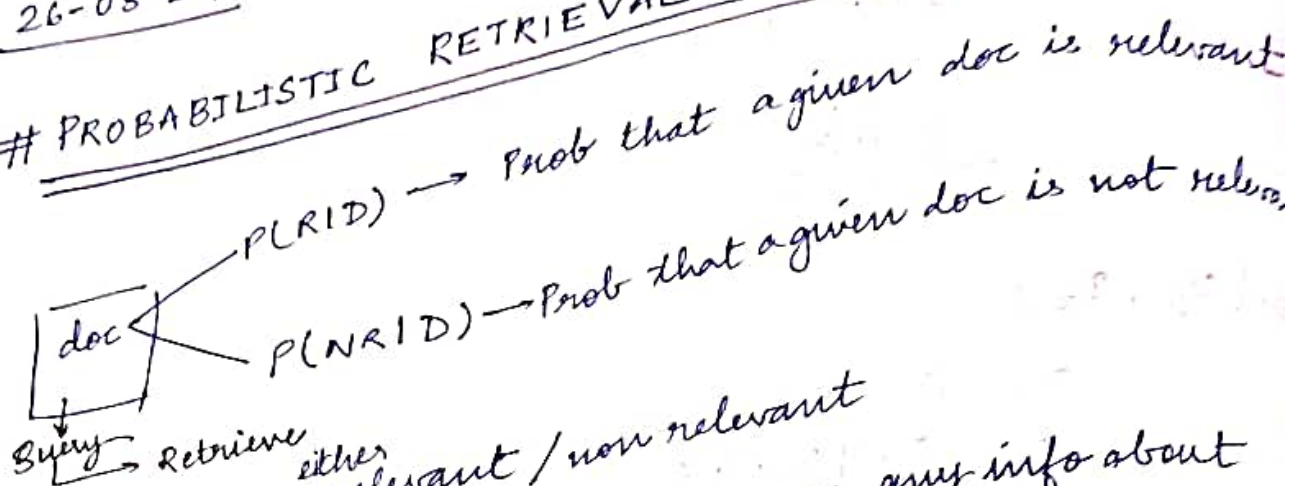 26-03
# PROBABILISTIC RETRIEVAL
P(R|D) → Prob that a given doc is relevant
doc
P(NR|D) → Prob that a given doc is not
Query → Retrieve
either
relevant / non relevant
any info about